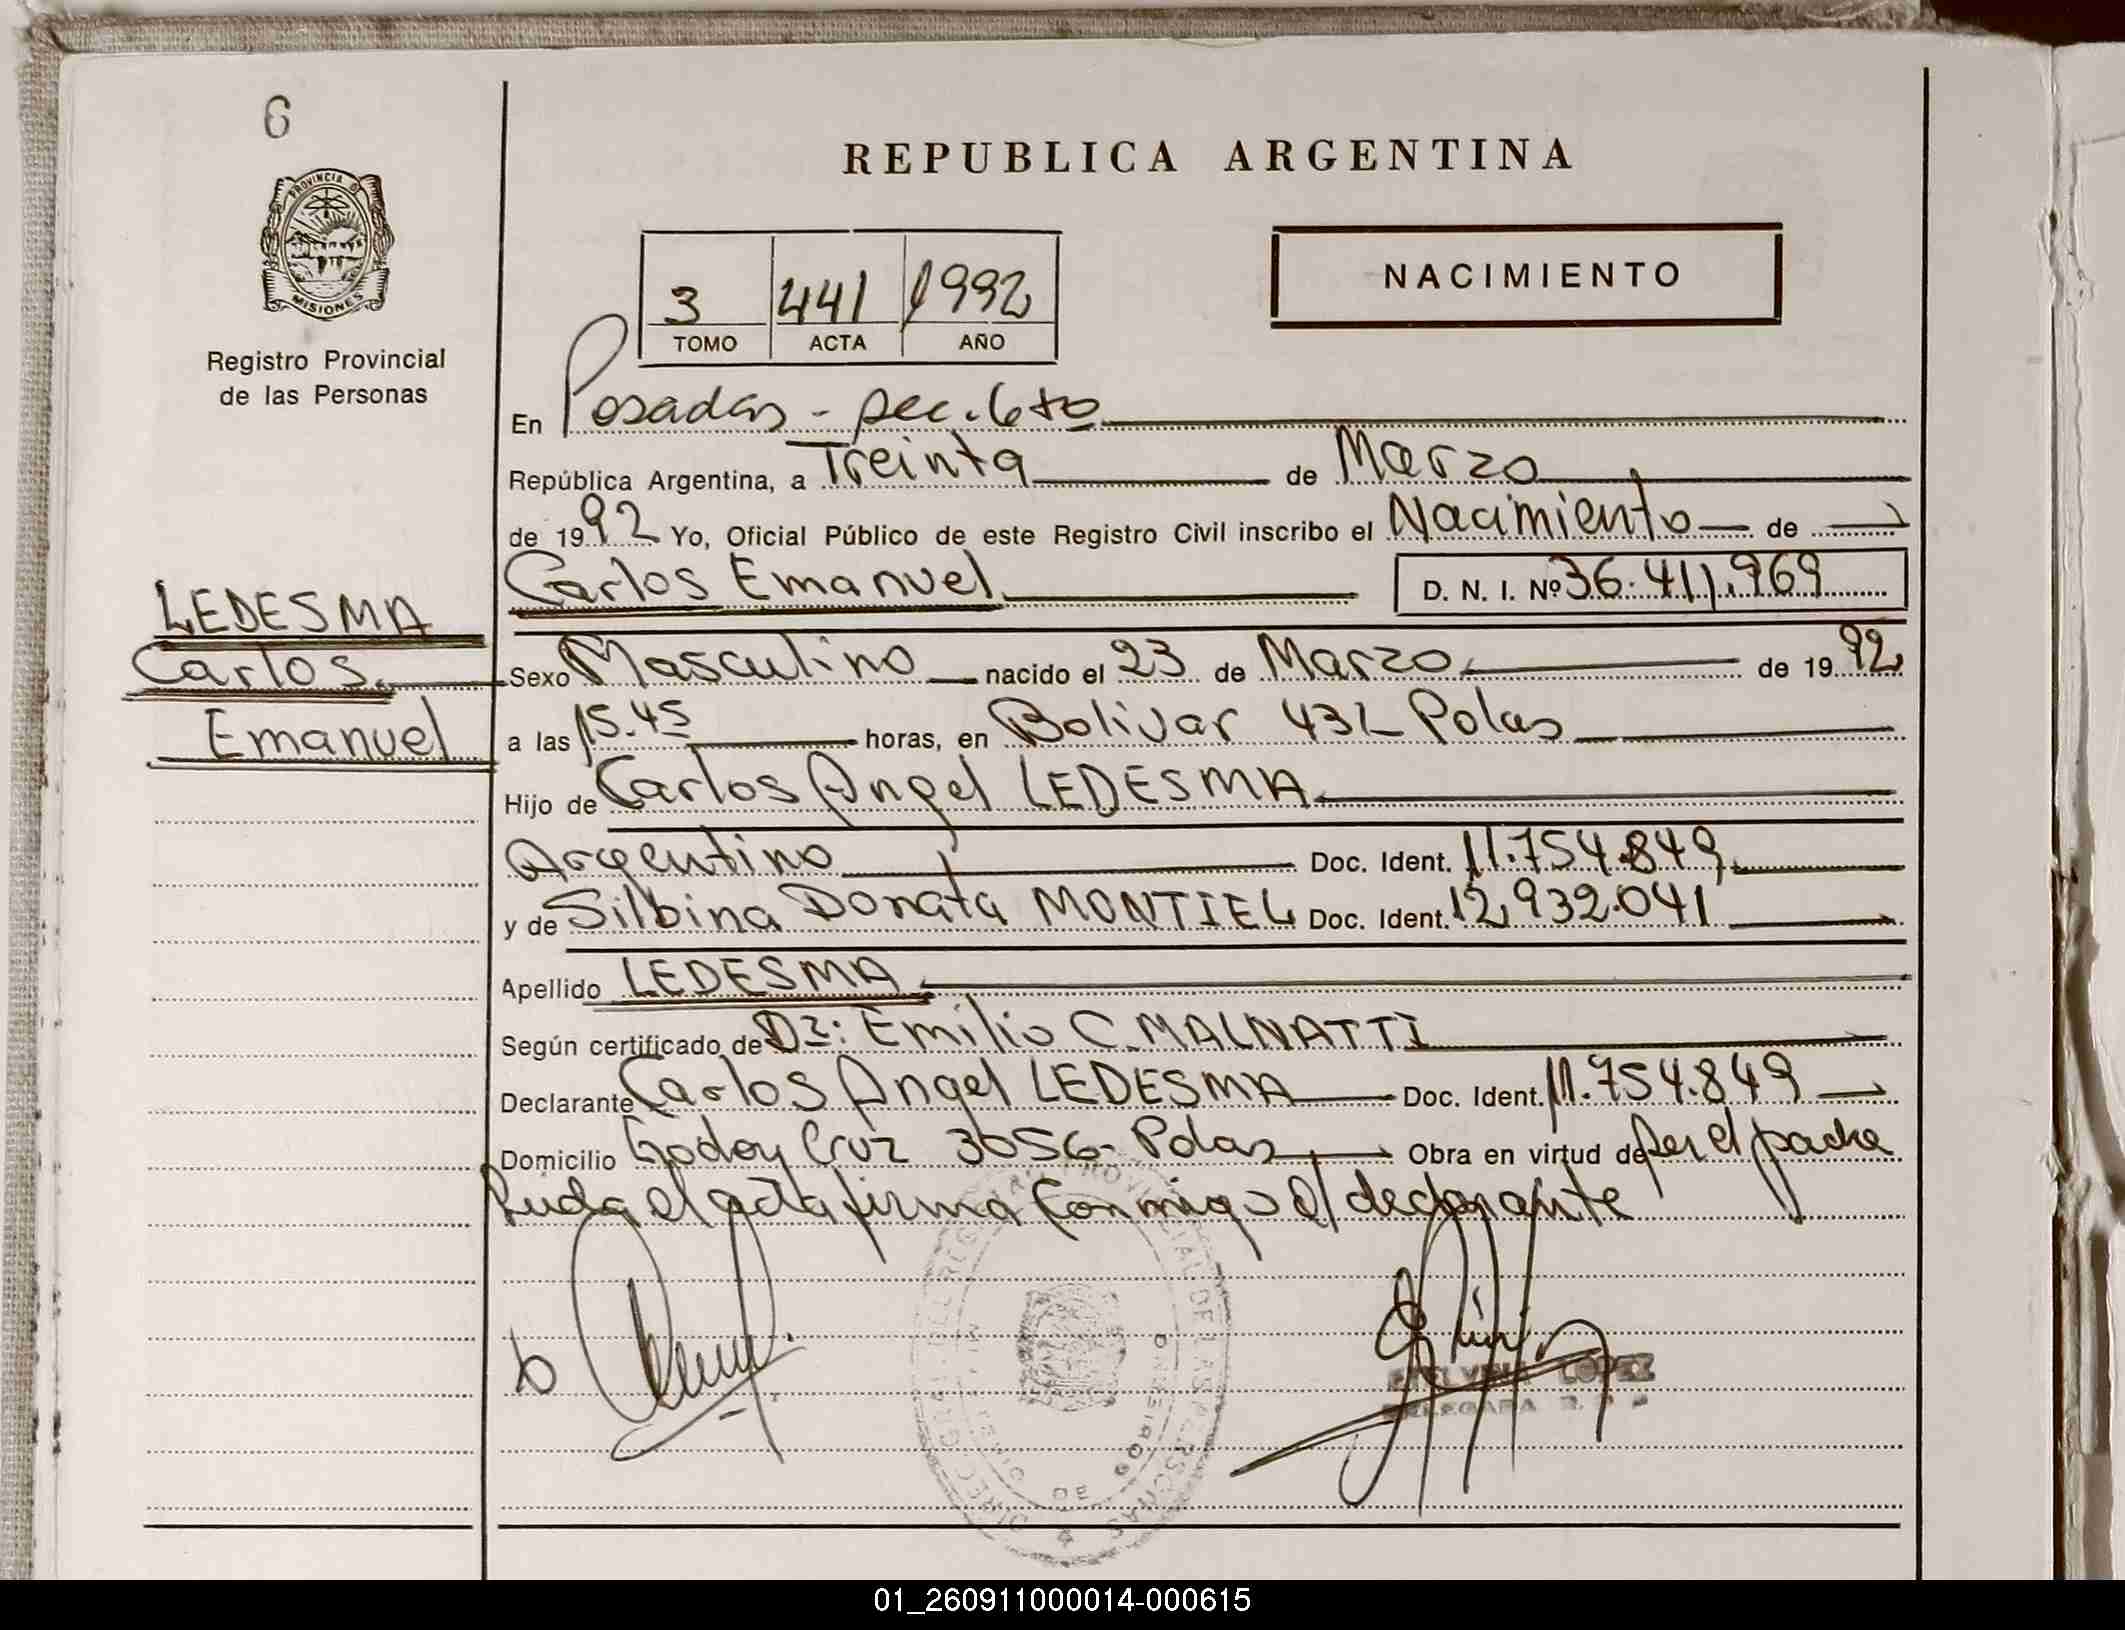 6
PROVINCIA DE
MISIONES
Registro Provincial
de las Personas
REPUBLICA ARGENTINA
NACIMIENTO
3 441 1992
TOMO ACTA AÑO
En Posadas - sec. 6to
República Argentina, a Treinta de Marzo
de 1992 Yo, Oficial Público de este Registro Civil inscribo el Nacimiento de
Carlos Emanuel D. N. I. Nº 36.411.969
LEDESMA
Carlos
Emanuel
Sexo Masculino nacido el 23 de Marzo de 1992
a las 15.45 horas, en Bolivar 432 Pdas
Hijo de Carlos Angel LEDESMA
Argentino Doc. Ident. 11.754.849
y de Silbina Donata MONTIEL Doc. Ident. 12.932.041
Apellido LEDESMA
Según certificado de Dr: Emilio C. MALNATTI
Declarante Carlos Angel LEDESMA Doc. Ident. 11.754.849
Domicilio Godoy Cruz 3056 - Pdas Obra en virtud de ser el padre
Leida el acta firma conmigo el declarante
LOPEZ
01_260911000014-000615